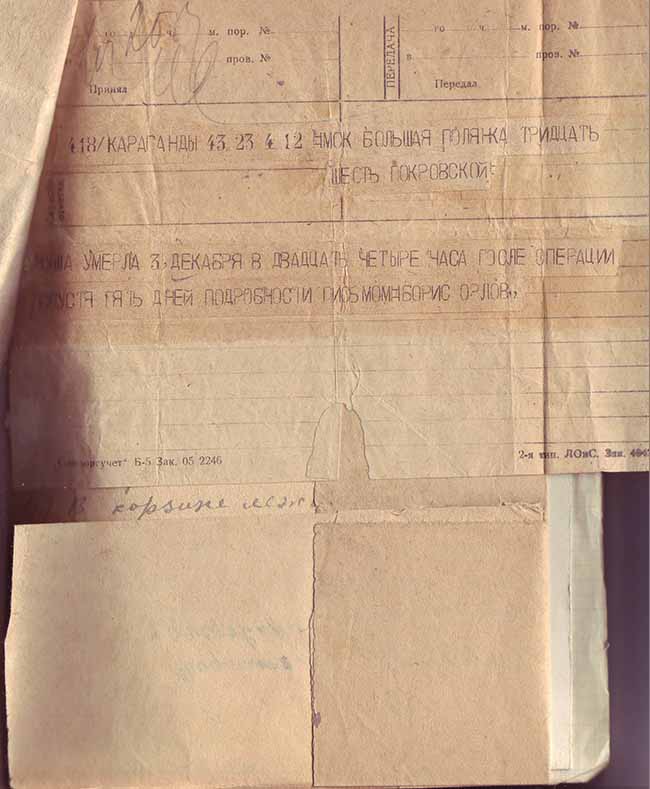 го ч. м. пор. №
го ч. м. пор. №
пров. №
ПЕРЕДАЧА
Принял
Передал
418/КАРАГАНДЫ 43 23 4 12 ЧМСК БОЛЬШАЯ ПОЛЯНКА ТРИДЦАТЬ
ШЕСТЬ ПОКРОВСКОЙ
УМЕРЛА 3 ДЕКАБРЯ В ДВАДЦАТЬ ЧЕТЫРЕ ЧАСА ПОСЛЕ ОПЕРАЦИИ
ПЯТЬ ДНЕЙ ПОДРОБНОСТИ ПИСЬМОМ БОРИС ОРЛОВ
Б-5 Зак. 05 2246
2-я тип. ЛОиС. Зак.
В корзине